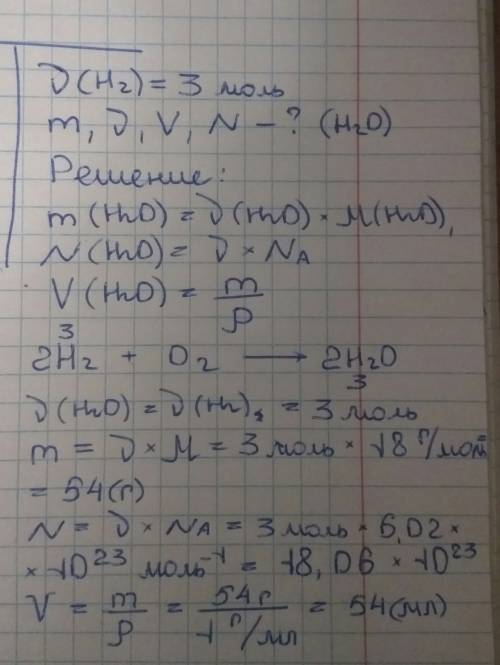 ν(H₂) = 3 моль
m, ν, V, N – ? (H₂O)
Решение:
m(H₂O) = ν(H₂O) × M(H₂O),
N(H₂O) = ν × NA
V(H₂O) = m/ρ
3
2H₂ + O₂ → 2H₂O
3
ν(H₂O) = ν(H₂) = 3 моль
m = ν × M = 3 моль × 18 г/моль =
= 54(г)
N = ν × NA = 3 моль × 6,02 ×
× 10²³ моль⁻¹ = 18,06 × 10²³
V = m/ρ = 54г/1 г/мл = 54(мл)